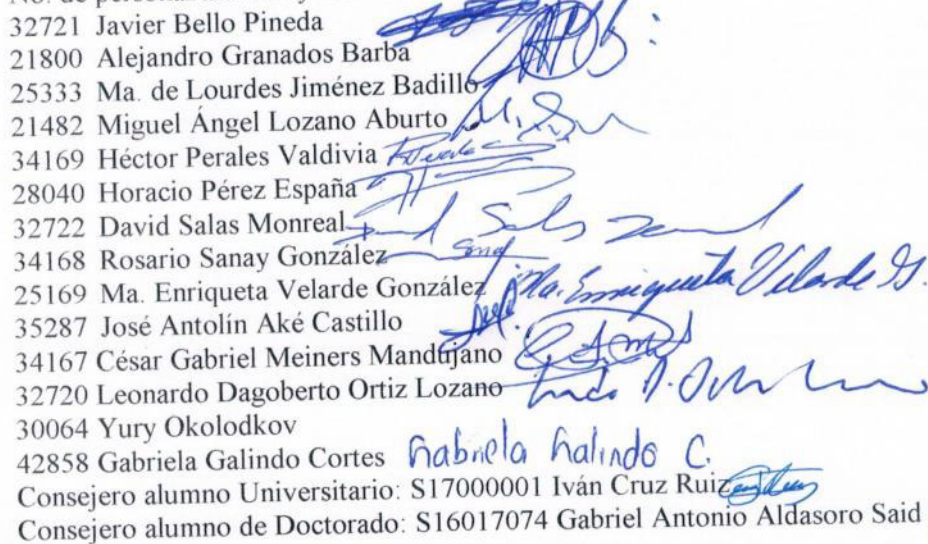 32721 Javier Bello Pineda
21800 Alejandro Granados Barba
25333 Ma. de Lourdes Jiménez Badillo
21482 Miguel Ángel Lozano Aburto
34169 Héctor Perales Valdivia
28040 Horacio Pérez España
32722 David Salas Monreal
34168 Rosario Sanay González
25169 Ma. Enriqueta Velarde González Ma. Enriqueta Velarde G.
35287 José Antolín Aké Castillo
34167 César Gabriel Meiners Mandujano
32720 Leonardo Dagoberto Ortiz Lozano
30064 Yury Okolodkov
42858 Gabriela Galindo Cortes Gabriela Galindo C.
Consejero alumno Universitario: S17000001 Iván Cruz Ruiz
Consejero alumno de Doctorado: S16017074 Gabriel Antonio Aldasoro Said